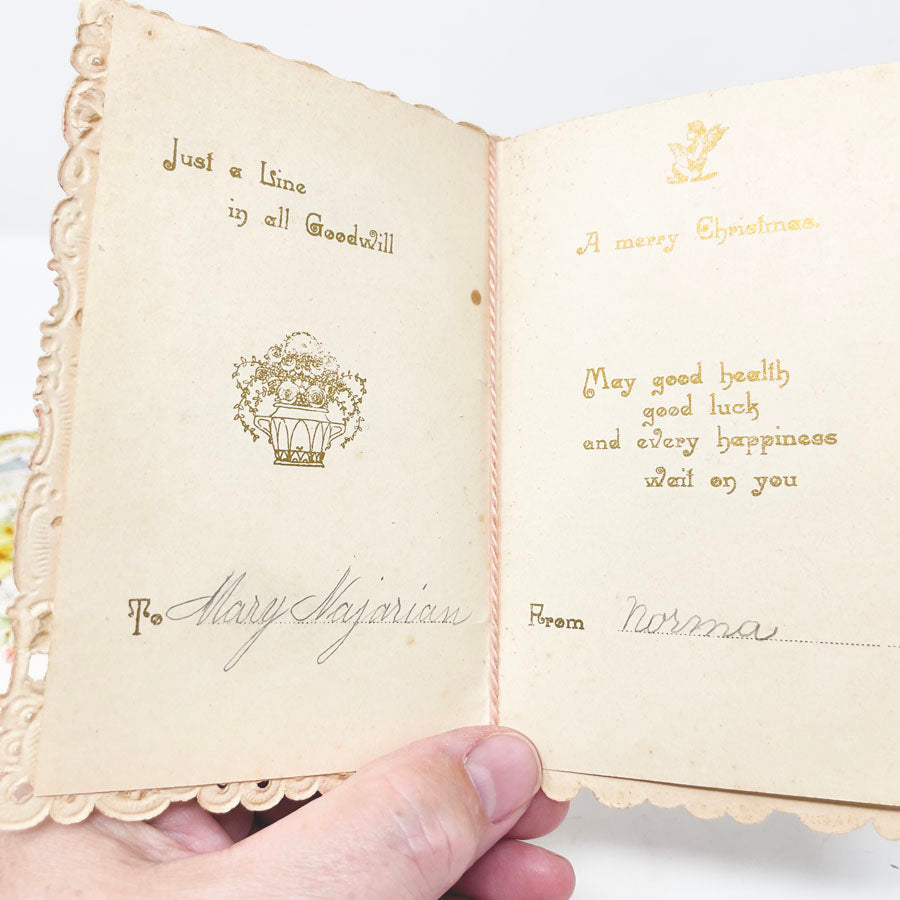 Just a Line
in all Goodwill
To Mary Najarian
A merry Christmas.
May good health
good luck
and every happiness
wait on you
From Norma